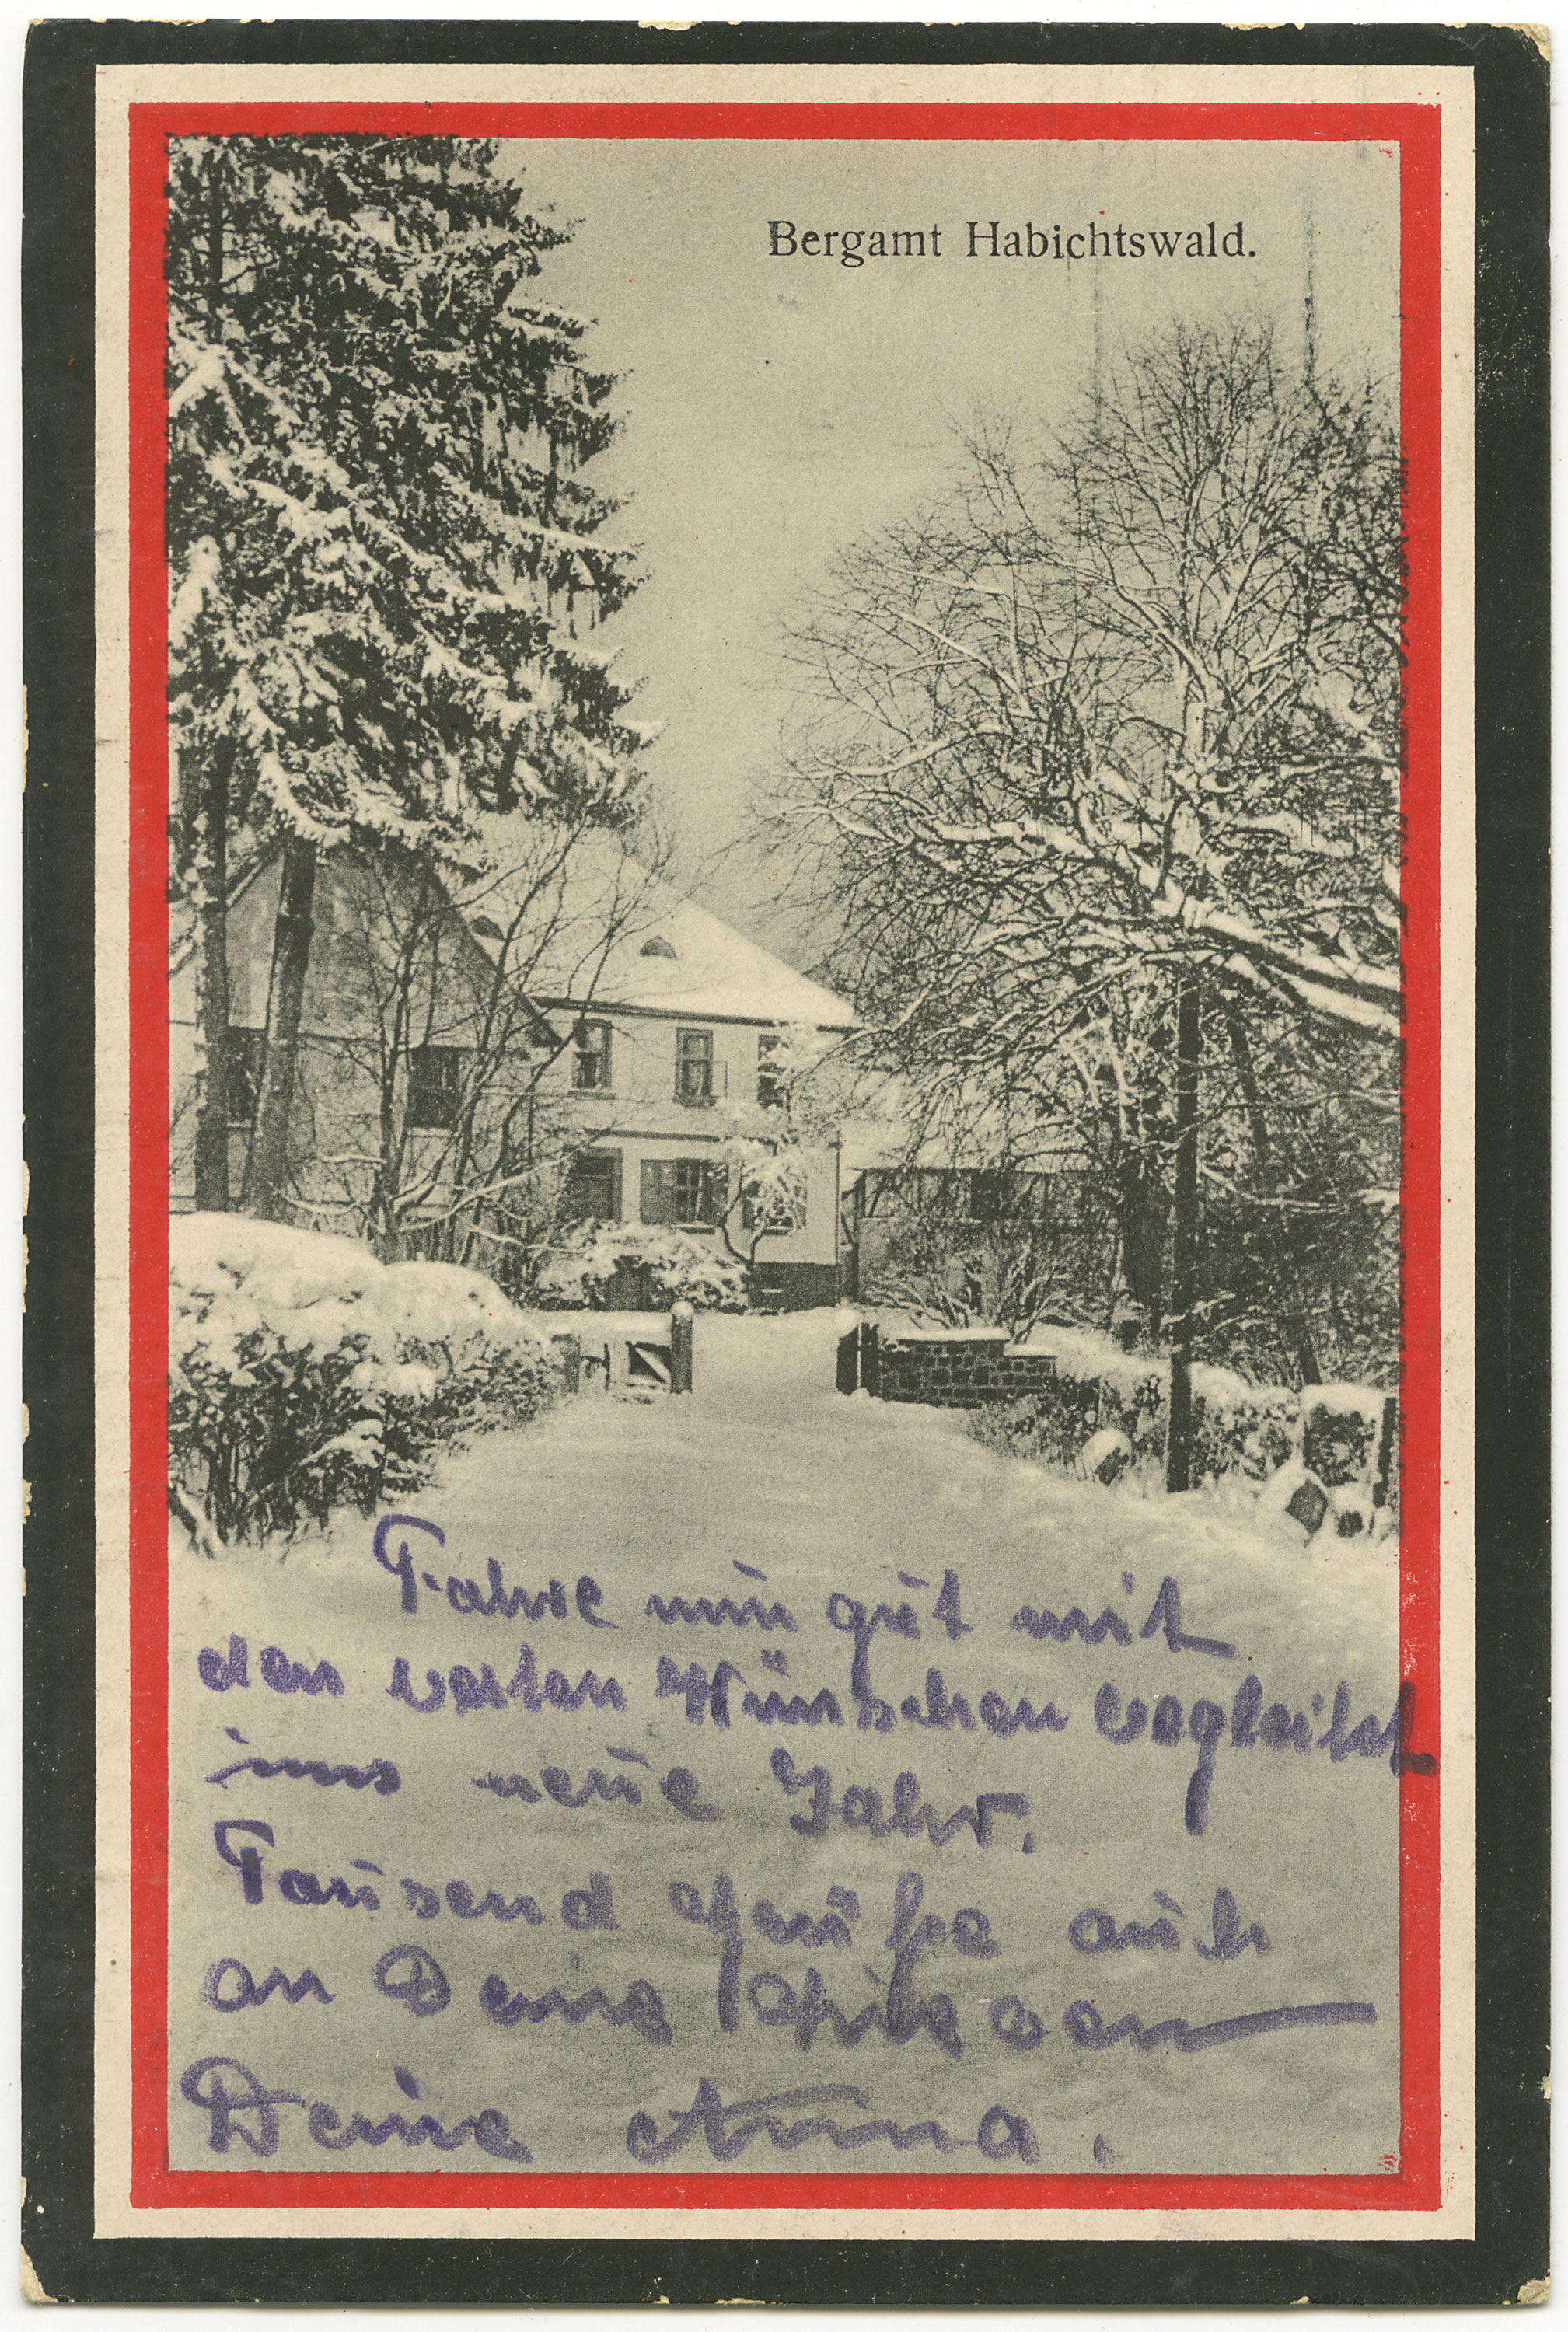 Bergamt Habichtswald.
Fahre nun gut mit
den besten Wünschen begleitet
ins neue Jahr.
Tausend Grüße auch
an Deine lieben
Deine Anna.